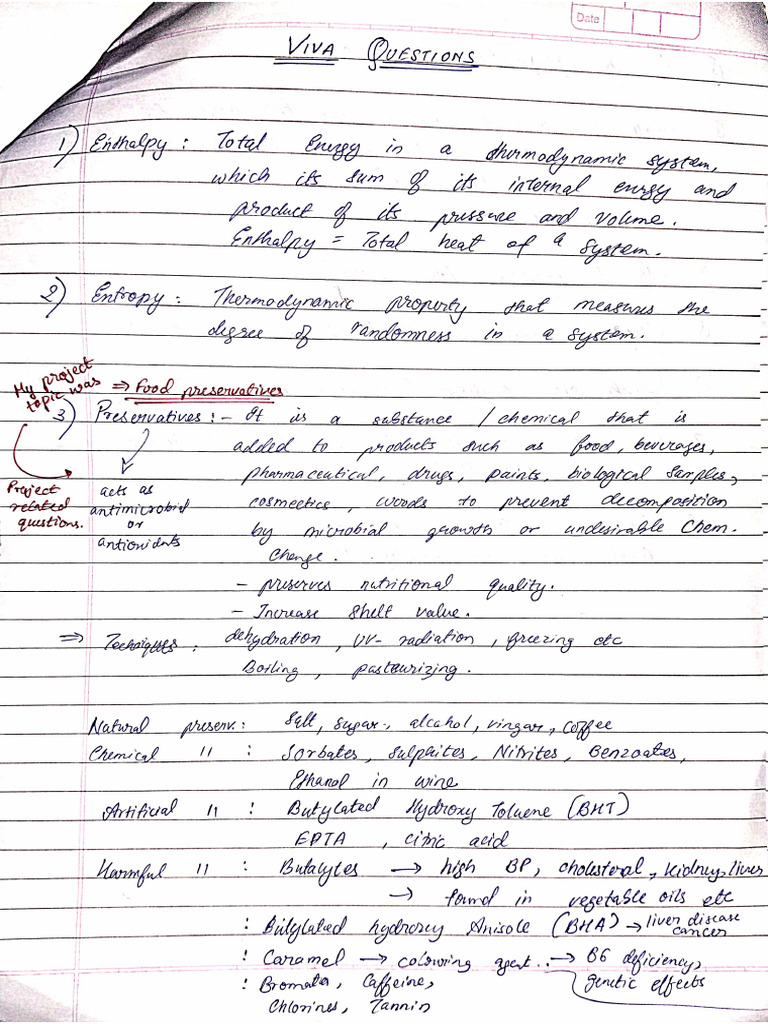 Date
VIVA QUESTIONS
1) Enthalpy : Total Energy in a thermodynamic system,
which its sum of its internal energy and
product of its pressure and volume.
Enthalpy = Total heat of a system.
2) Entropy : Thermodynamic property that measures the
degree of randomness in a system.
My project topic was => Food preservatives
3) Preservatives :- It is a substance / chemical that is
added to products such as food, beverages,
pharmaceutical, drugs, paints, biological samples,
cosmectics, woods to prevent decomposition
by microbial growth or undesirable Chem.
change.
Project
related
questions.
acts as
antimicrobial
or
antioxidants
- preserves nutritional quality.
- Increase Shelf value.
=> Techniques : dehydration, UV- radiation, freezing etc
Boiling, pasteurizing.
Natural preserv. : Salt, sugar, alcohol, vingar, coffee
Chemical " : Sorbates, Sulphites, Nitrites, Benzoates,
Ethanol in wine
Artificial " : Butylated Hydroxy Toluene (BHT)
EDTA , citric acid
Harmful " : Butalytes → high BP, cholesteral, kidney, liver
→ found in vegetable oils etc
: Butylated hydroxy Anisole (BHA) → liver disease
cancer
: Caramel → colouring agent .. → B6 deficiency,
genetic effects
: Bromates, Caffeine,
Chlorines, Tannin